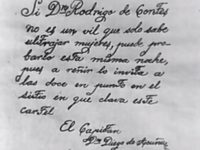 Si Dn Rodrigo de Contes
no es un vil que solo sabe
ultrajar mujeres, puede pro-
barlo esta misma noche,
pues a reñir lo invita a
las doce en punto en el
sitio en que clava este
cartel
El Capitan
Dn Diego de